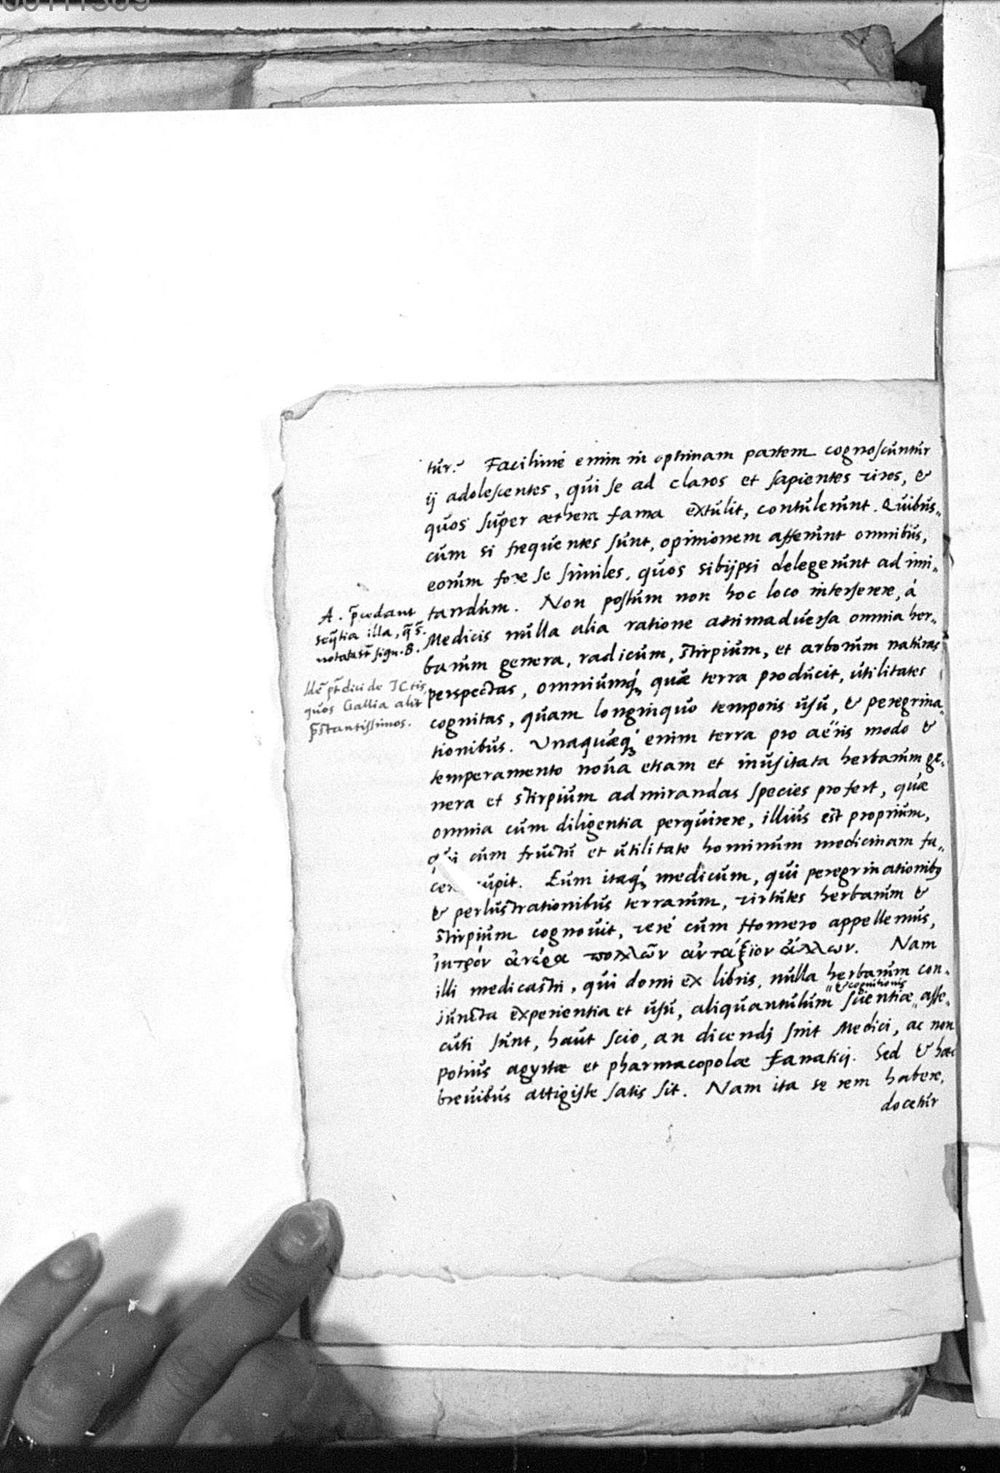 tur. Facilimè enim in optimam partem cognoscuntur
ij adolescentes, qui se ad claros et sapientes viros, &
quos super æthera fama extulit, contulerunt. Quibus-
cum si frequentes sunt, opinionem afferunt omnibus,
eorum fore se similes, quos sibijpsi delegerunt ad imi-
tandum. Non possum non hoc loco interserere, à
Medicis nulla alia ratione animaduersa omnia her-
barum genera, radicum, stirpium, et arborum naturas
perspectas, omniumq; quæ terra producit, utilitates
cognitas, quam longinquo temporis usu, & peregrina-
tionibus. Vnaquæq; enim terra pro aëris modo &
temperamento noua etiam et inusitata herbarum ge-
nera et stirpium admirandas species profert, quæ
omnia cum diligentia perquirere, illius est proprium,
qui cum fructu et utilitate hominum medicinam fa-
cere cupit. Eum itaq; medicum, qui peregrinationibus
& perlustrationibus terrarum, virtutes herbarum &
stirpium cognouit, verè cum Homero appellemus,
ἰητρόν ἀνέρα πολλῶν ἀνταξιον ἄλλων. Nam
illi medicastri, qui domi ex libris, nulla herbarum con-
iuncta experientia et usu, aliquantulum scientiæ asse-
& cognitionis
cuti sunt, haut scio, an dicendi sint Medici, ac non
potius agyrtæ et pharmacopolæ fanatici. Sed & hæc
breuibus attigisse satis sit. Nam ita se rem habere,
docetur
A. præcedant
seq̄tia illa, q̄ s.
notata st sign. B.
Idē pt dici de ICtis
quos Gallia alit
p̄stantissimos.